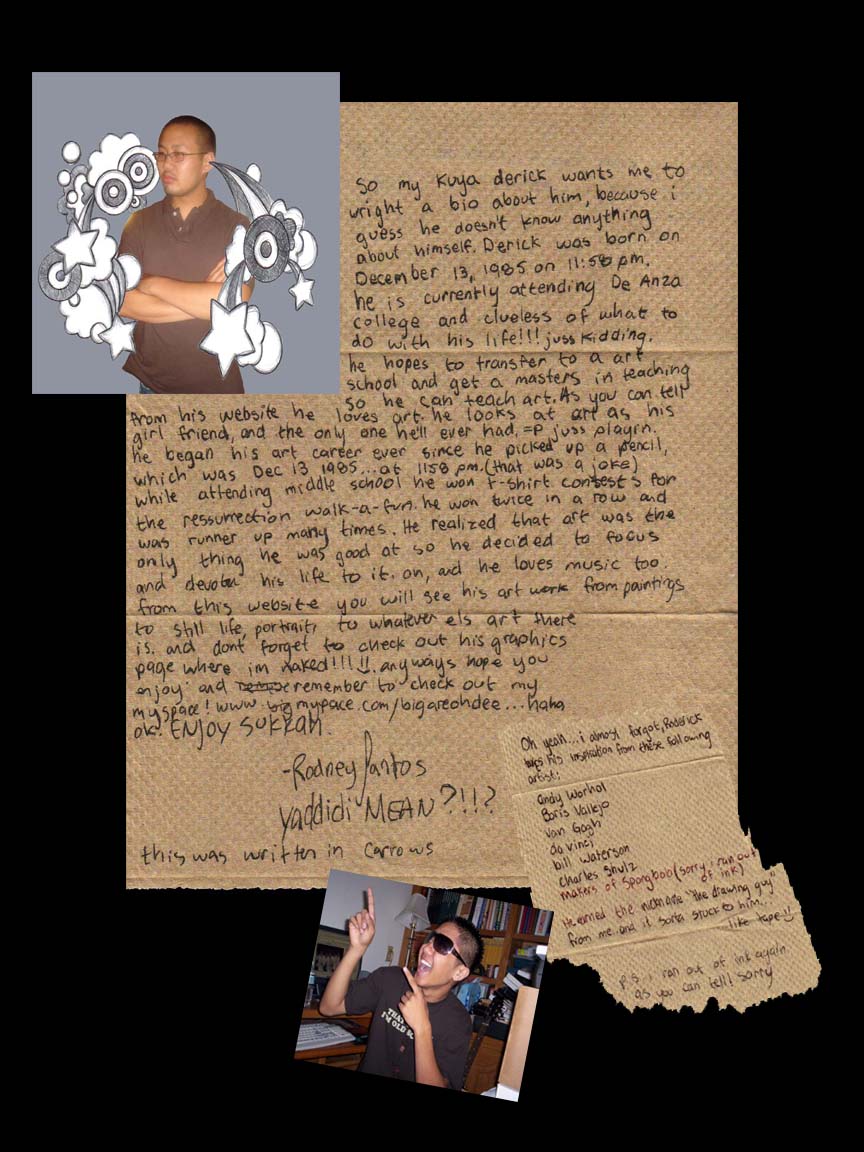 So my Kuya derick wants me to
wright a bio about him, because i
guess he doesn't know anything
about himself. Derick was born on
December 13, 1985 on 11:58 pm.
he is currently attending De Anza
college and clueless of what to
do with his life!!! juss kidding.
he hopes to transfer to a art
school and get a masters in teaching
So he can teach art. As you can tell
from his website he loves art. he looks at art as his
girl friend, and the only one he'll ever had, =P juss playin.
he began his art career ever since he picked up a pencil,
which was Dec 13 1985...at 1158 pm. (that was a joke)
while attending middle school he won t-shirt contests for
the ressurrection walk-a-fun. he won twice in a row and
was runner up many times. He realized that art was the
only thing he was good at so he decided to focus
and his life to it. oh, and he loves music too.
from this website you will see his art work from paintings
to still life, portrait, to whatever els art there
is. and dont forget to check out his graphics
page where im naked!!! !!. anyways hope you
enjoy and remember to check out my
myspace! www.bigmyspace.com/bigareohdee...haha
ok. ENJOY SUKRAH.
-Rodney Santos
Yaddidi MEAN?!!?
this was written in Carrows
Oh yeah... i almost forgot, Roderick
takes his inspiration from these following
artist:
andy Worhol
Boris Vallejo
Van Gogh
da vinci
bill Waterson
Charles Shulz
makers of Spongbob (sorry i ran out
of ink)
He earned the nickname "the drawing guy"
from me. and it sorta stuck to him...
like tape!!
p.s i ran out of ink again
as you can tell! sorry
THAT
I'M OLD